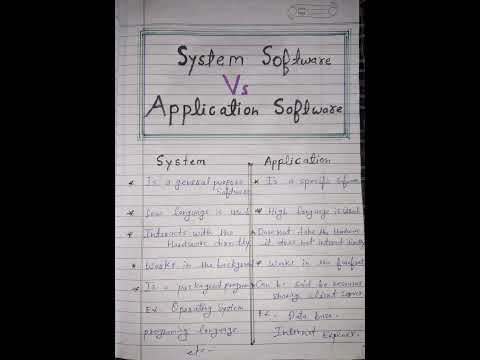 System Software
Vs
Application Software
System
Application
* Is a general purpose Software
* Is a specific sf
* Low language is used
* High language is used
* Interacts with the Hardware directly
* Does not take the Hardware it does not interact directly
* Works in the background
* Works in the forefront
* Is a packaged program
Can be said to be resource sharing client server
Ex. Operating System
programing language
etc -
Ex. Data base.
Internet Explorer.